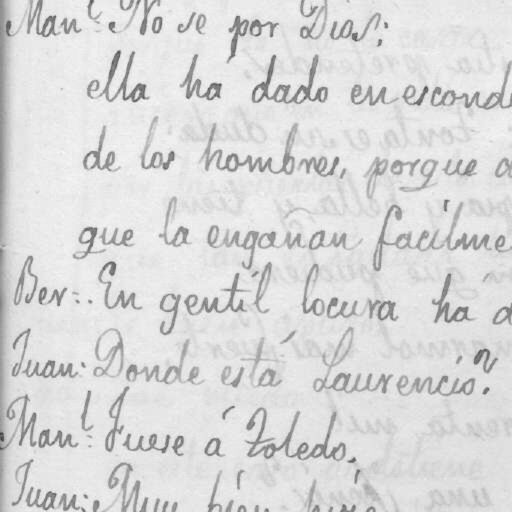 Man.l No se por Dios;
ella há dado en escond
de los hombres, porque
que la engañan facilme
Ber: En gentil locura ha d
Juan: Donde está Laurencio?
Man.l: Fuese á Toledo.
Juan: Muy bién hizo